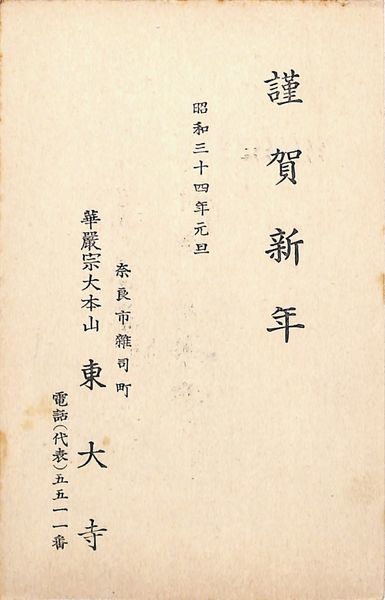 謹賀新年
昭和三十四年元旦
奈良市雜司町
華嚴宗大本山 東大寺
電話(代表)五五一一番